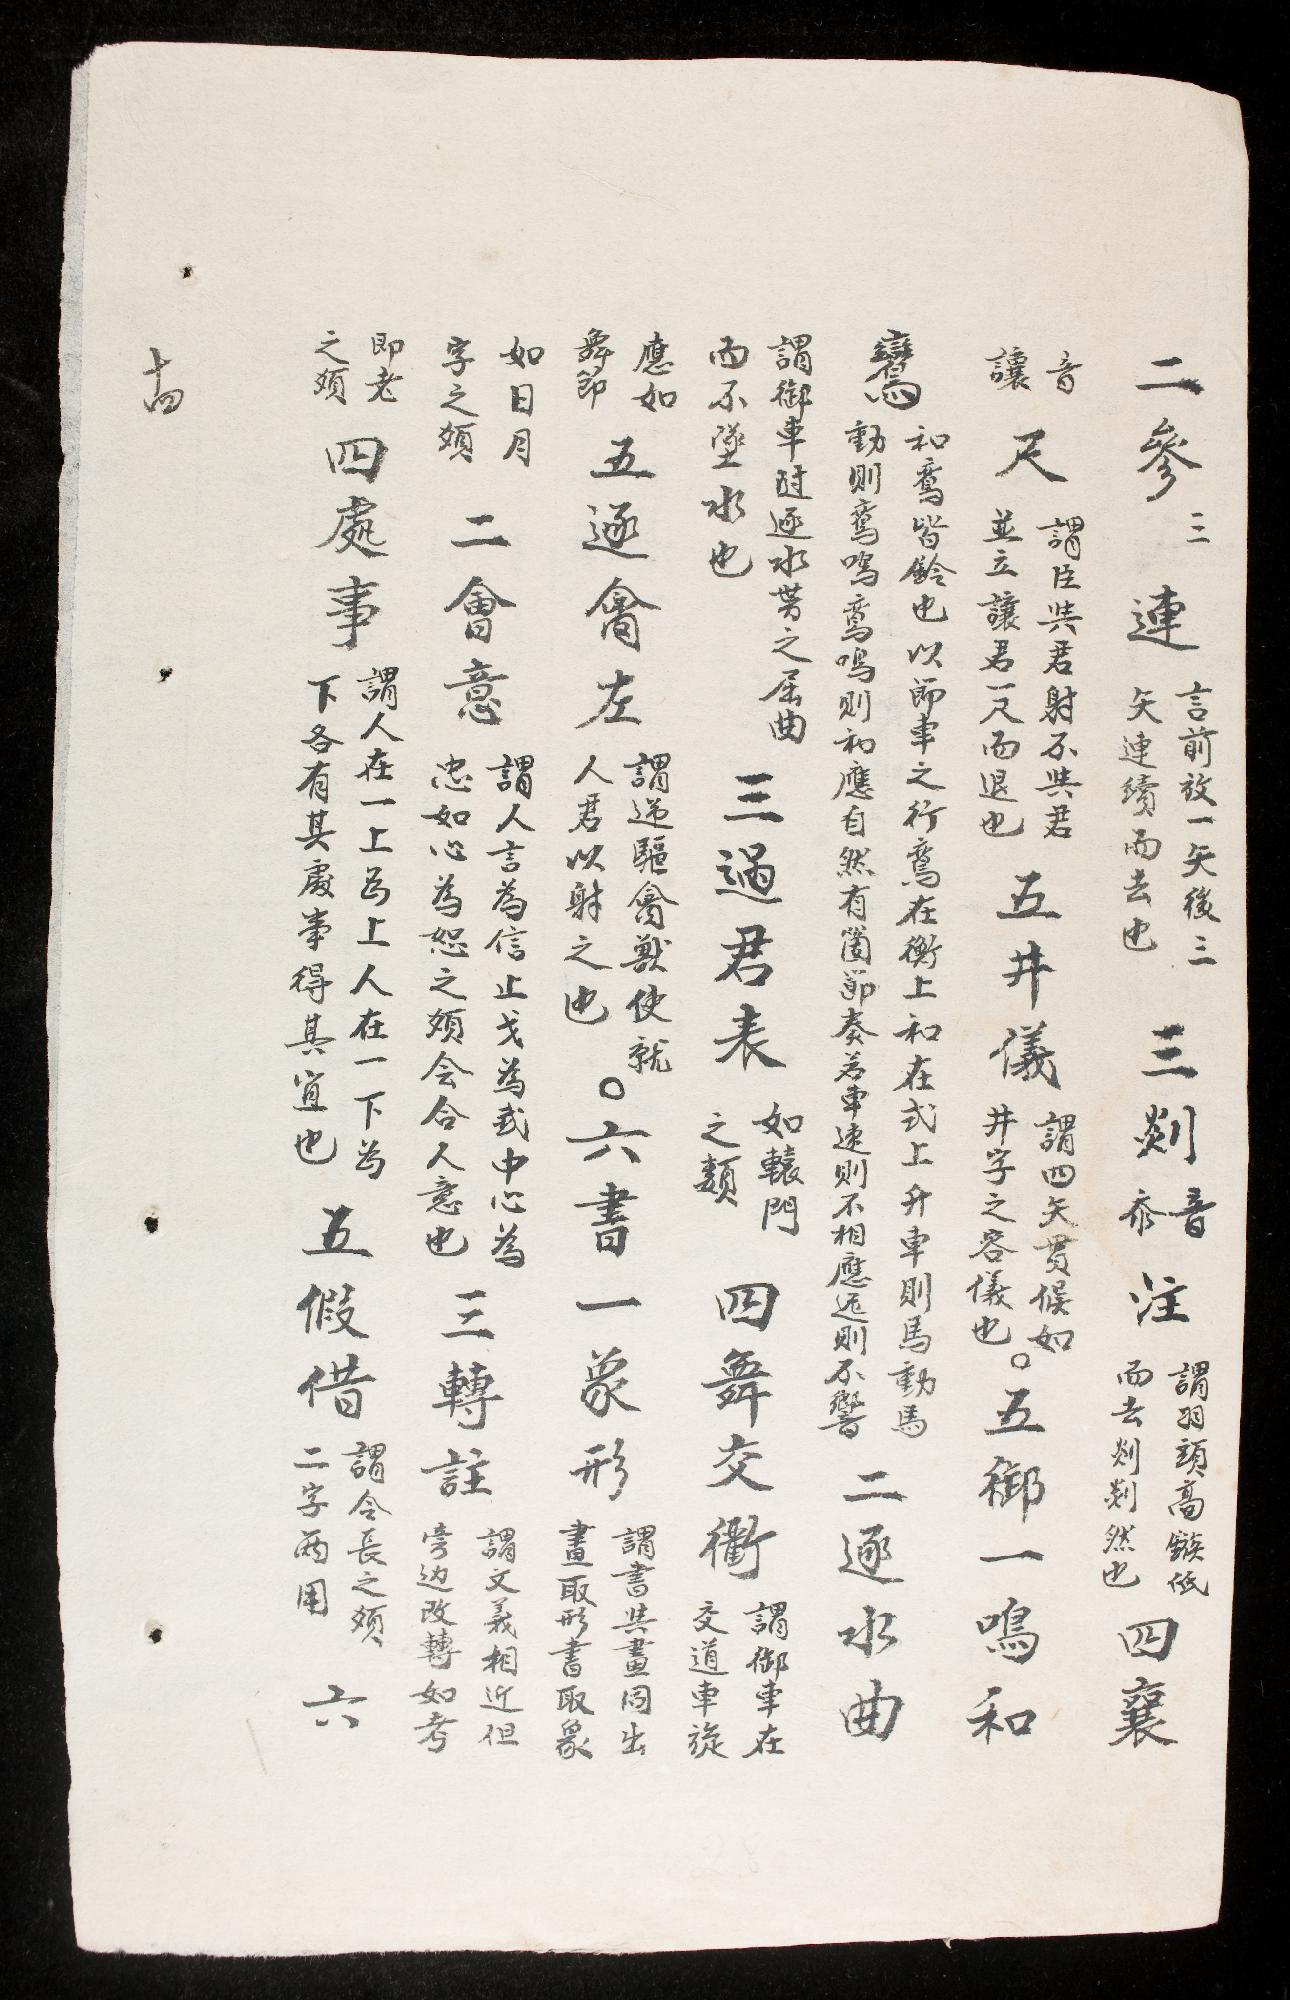 二參三連言前放一矢後三矢連續而去也三剡音忝注謂羽頭高鏃低而去剡剡然也四襄
音讓尺謂臣與君射不與君並立讓君一尺而退也五井儀謂四矢貫候如井字之容儀也○五御一鳴和
鸞和鸞皆鈴也以節車之行鸞在衡上和在式上升車則馬動馬動則鸞鳴鸞鳴則和應自然有箇節奏若車速則不相應迟則不響二逐水曲
謂御車時逐水勢之屈曲而不墜水也三過君表如轅門之類四舞交衢謂御車在交道車旋
應如舞節五逐禽左謂逆驅禽獸使就人君以射之也○六書一象形謂書與畫同出畫取形書取象
如日月字之類二會意謂人言為信止戈為武中心為忠如心為恕之類会合人意也三轉註謂文義相近但旁边改轉如考
即老之類四處事謂人在一上為上人在一下為下各有其處事得其宜也五假借謂令長之類二字両用六
十四